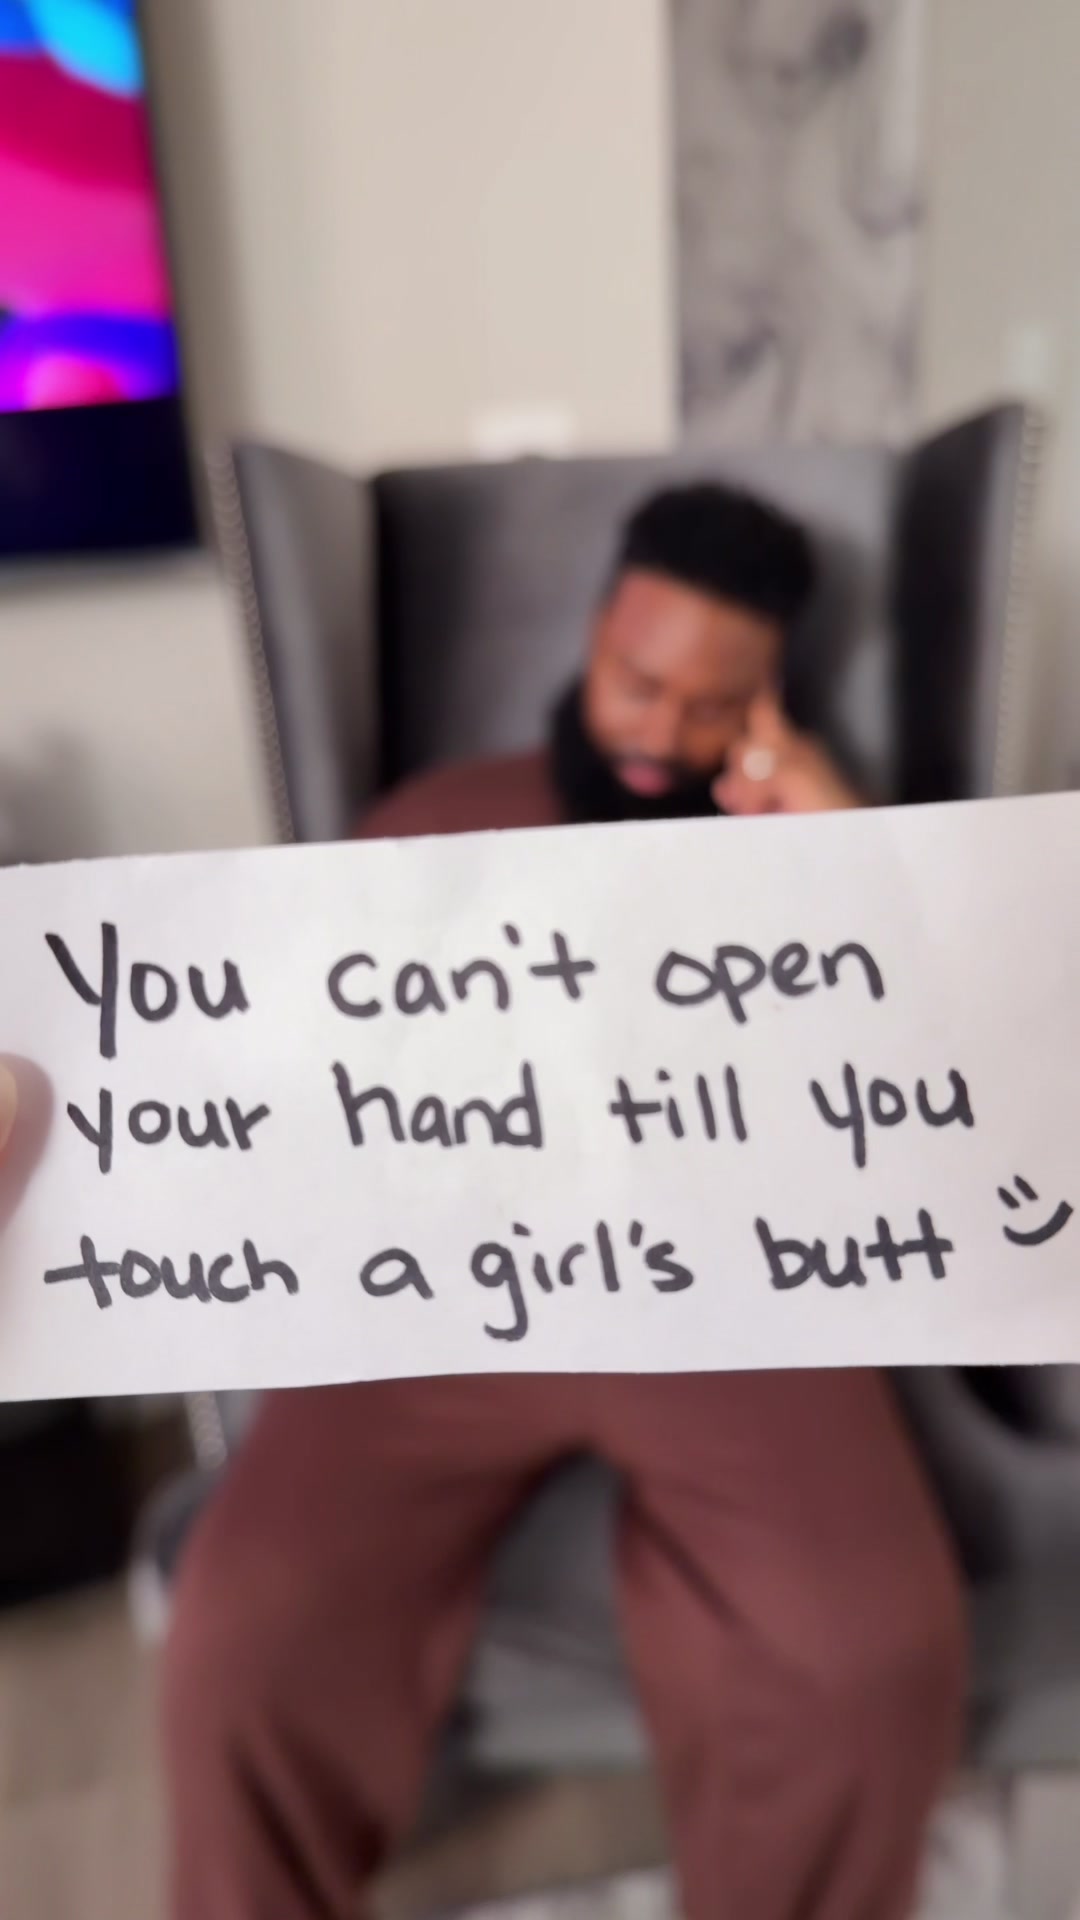 You can't open
your hand till you
touch a girl's butt